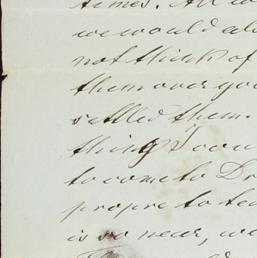 times. All w
we would al
not think of
them over go
settled them.
thing I con
to come to Dr
propre to te
is so near, we